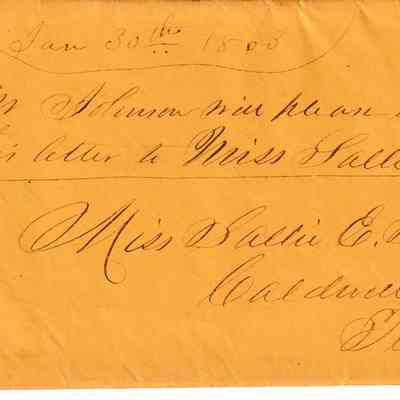 Jan 30th
Johnson will please
letter to Miss Sallie
Miss Sallie E.
Caldwell